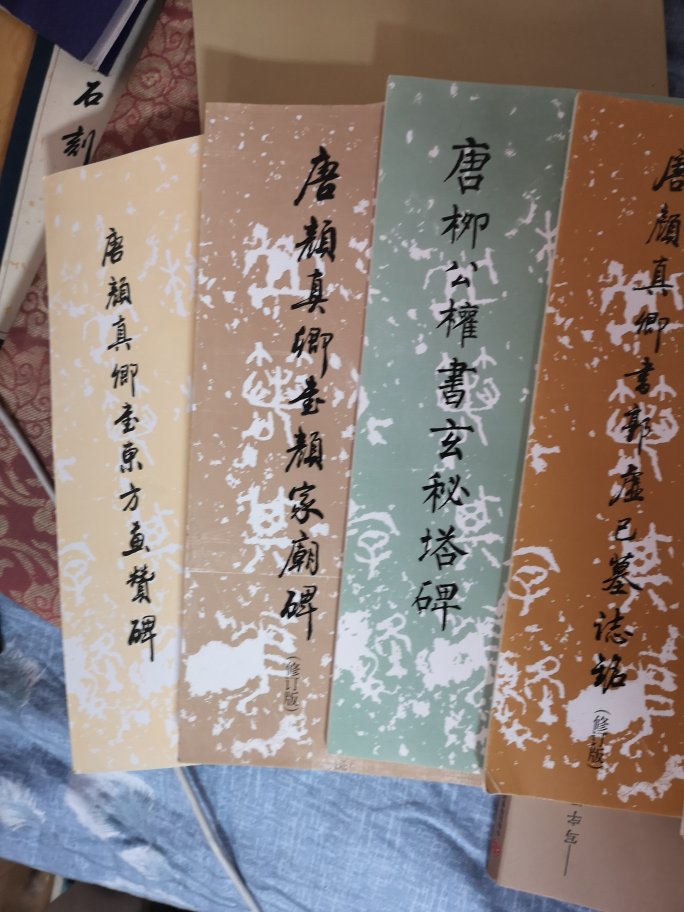 石刻
唐颜真卿書東方画赞碑
唐颜真卿書颜家廟碑
(修订版)
唐柳公權書玄秘塔碑
唐颜真卿書郭虚己墓誌銘
(修订版)